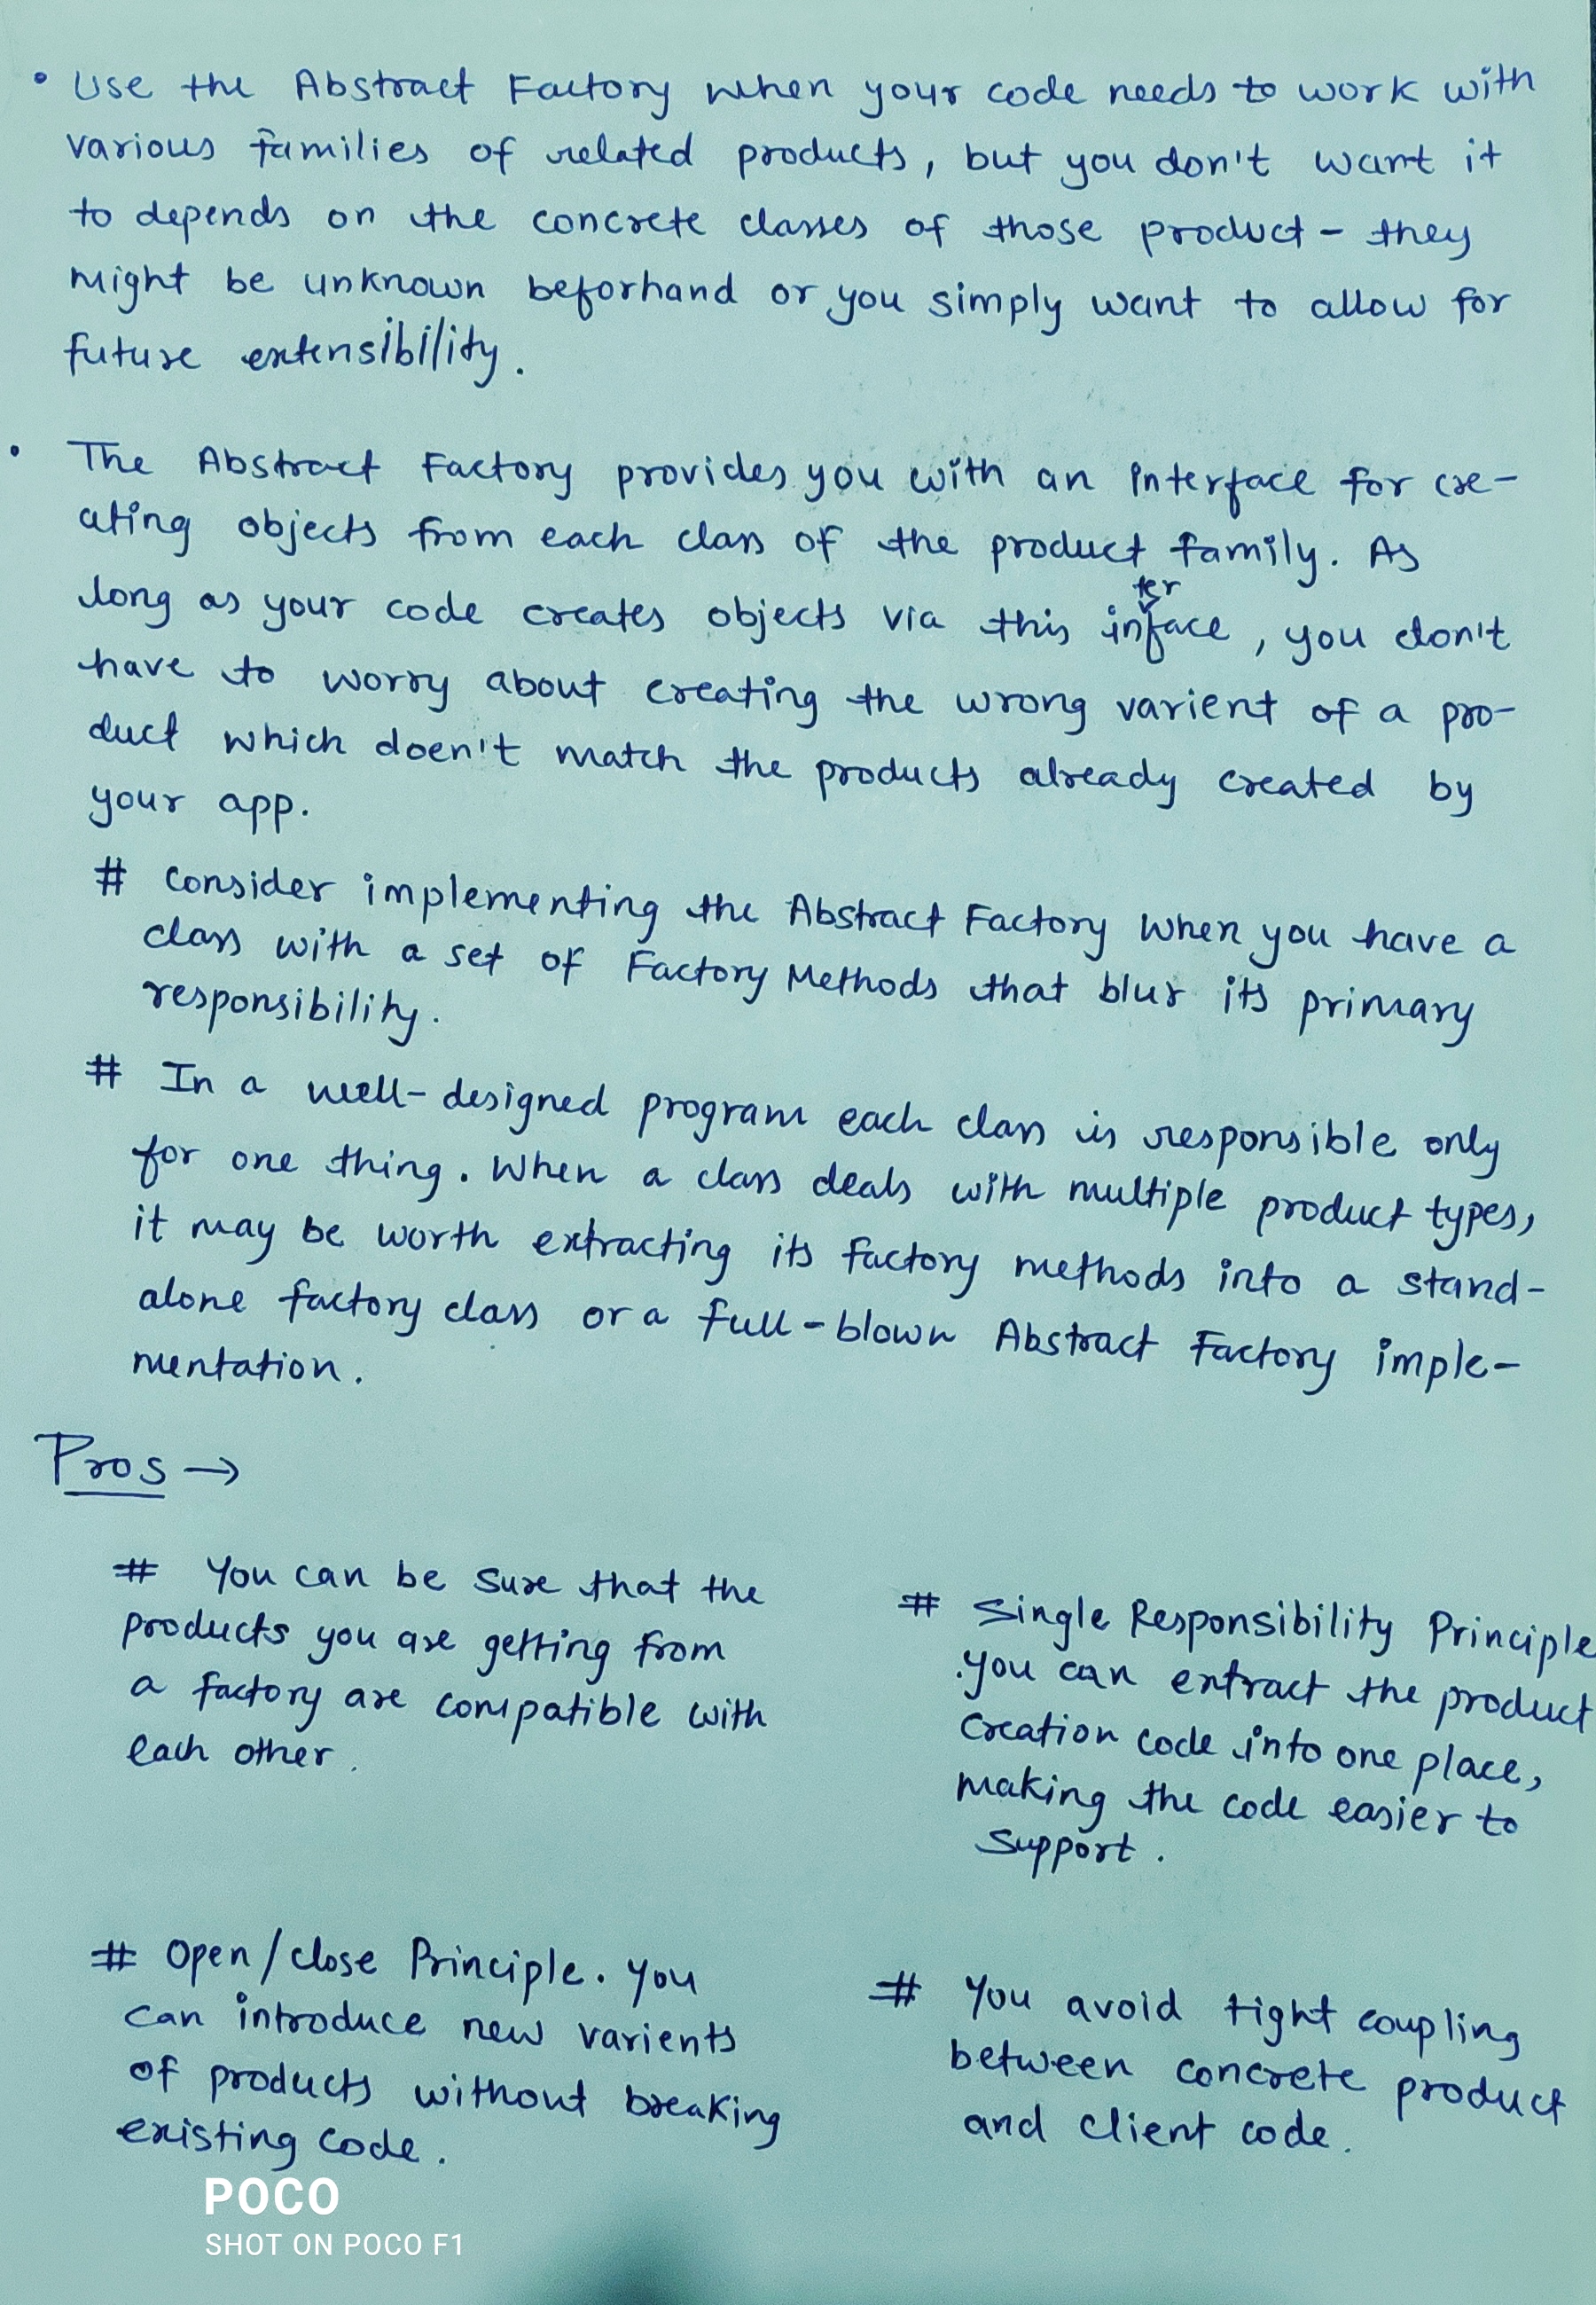 • Use the Abstract Factory when your code needs to work with
various families of related products, but you don't want it
to depends on the concrete classes of those product - they
might be unknown beforhand or you simply want to allow for
future extensibility.
• The Abstract Factory provides you with an interface for cre-
ating objects from each class of the product family. As
long as your code creates objects via this interface, you don't
have to worry about creating the wrong varient of a pro-
duct which doen't match the products already created by
your app.
# Consider implementing the Abstract Factory when you have a
class with a set of Factory Methods that blur its primary
responsibility.
# In a well-designed program each class is responsible only
for one thing. When a class deals with multiple product types,
it may be worth extracting its factory methods into a stand-
alone factory class or a full-blown Abstract Factory imple-
mentation.
Pros →
# You can be sure that the
products you are getting from
a factory are compatible with
each other.
# Single Responsibility Principle
.you can extract the product
creation code into one place,
making the code easier to
support.
# Open/close Principle. you
can introduce new varients
of products without breaking
existing code.
# You avoid tight coupling
between concrete product
and client code.
POCO
SHOT ON POCO F1